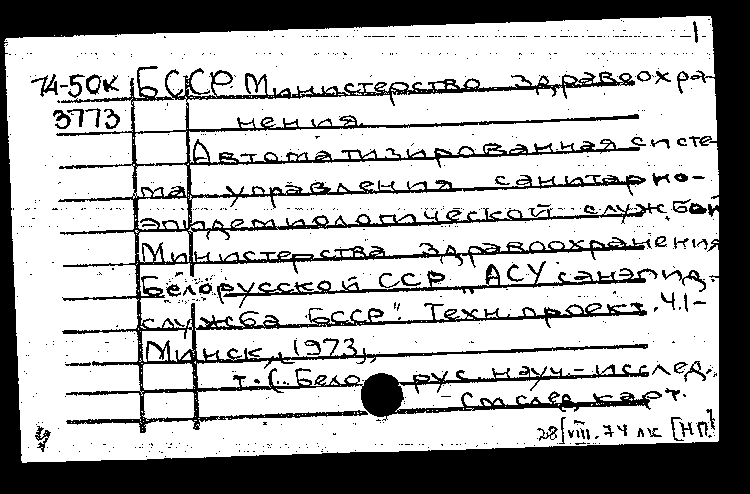 1
74-50к БССР Министерство здравоохра-
3773 нения
Автоматизированная систе-
ма управления санитарно-
эпидемиологической службой
Министерства здравоохранения
Белорусской ССР "АСУ санэпид-
служба БССР". Техн. проект. Ч.1-
Минск, 1973,
т. (. Бело рус. науч.-исслед.
- См след. карт.
28/VIII.74 лк [НП]